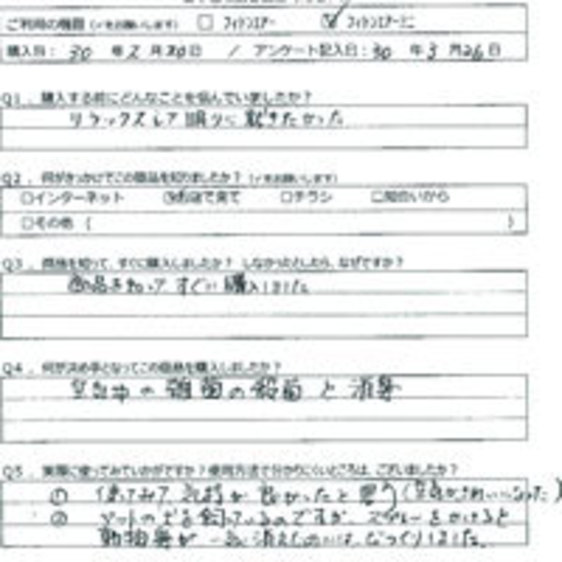 ご利用の機種 (✓をお願いします) □ フィトンエアー ☑ フィトンエアーミニ
購入日: 30 年 2 月 20 日 / アンケート記入日: 30 年 3 月 26 日
Q1. 購入する前にどんなことを悩んでいましたか?
リラックスして眠りに就きたかった
Q2. 何がきっかけでこの商品を知りましたか? (✓をお願いします)
□インターネット ☑お店で見て □チラシ □知合いから
□その他 ( )
Q3. 商品を知って、すぐに購入しましたか? しなかったとしたら、なぜですか?
商品を知って すぐに購入しました
Q4. 何が決め手となってこの商品を購入しましたか?
空気中の雑菌の殺菌と消臭
Q5. 実際に使ってみていかがですか?使用方法で分かりにくいところは、ございましたか?
① 使ってみて 気持が良かったと思う(空気がきれいになった)
② ペットの犬を飼っているのですが、スプレーをかけると
動物臭が 消えたのには、びっくりしました。